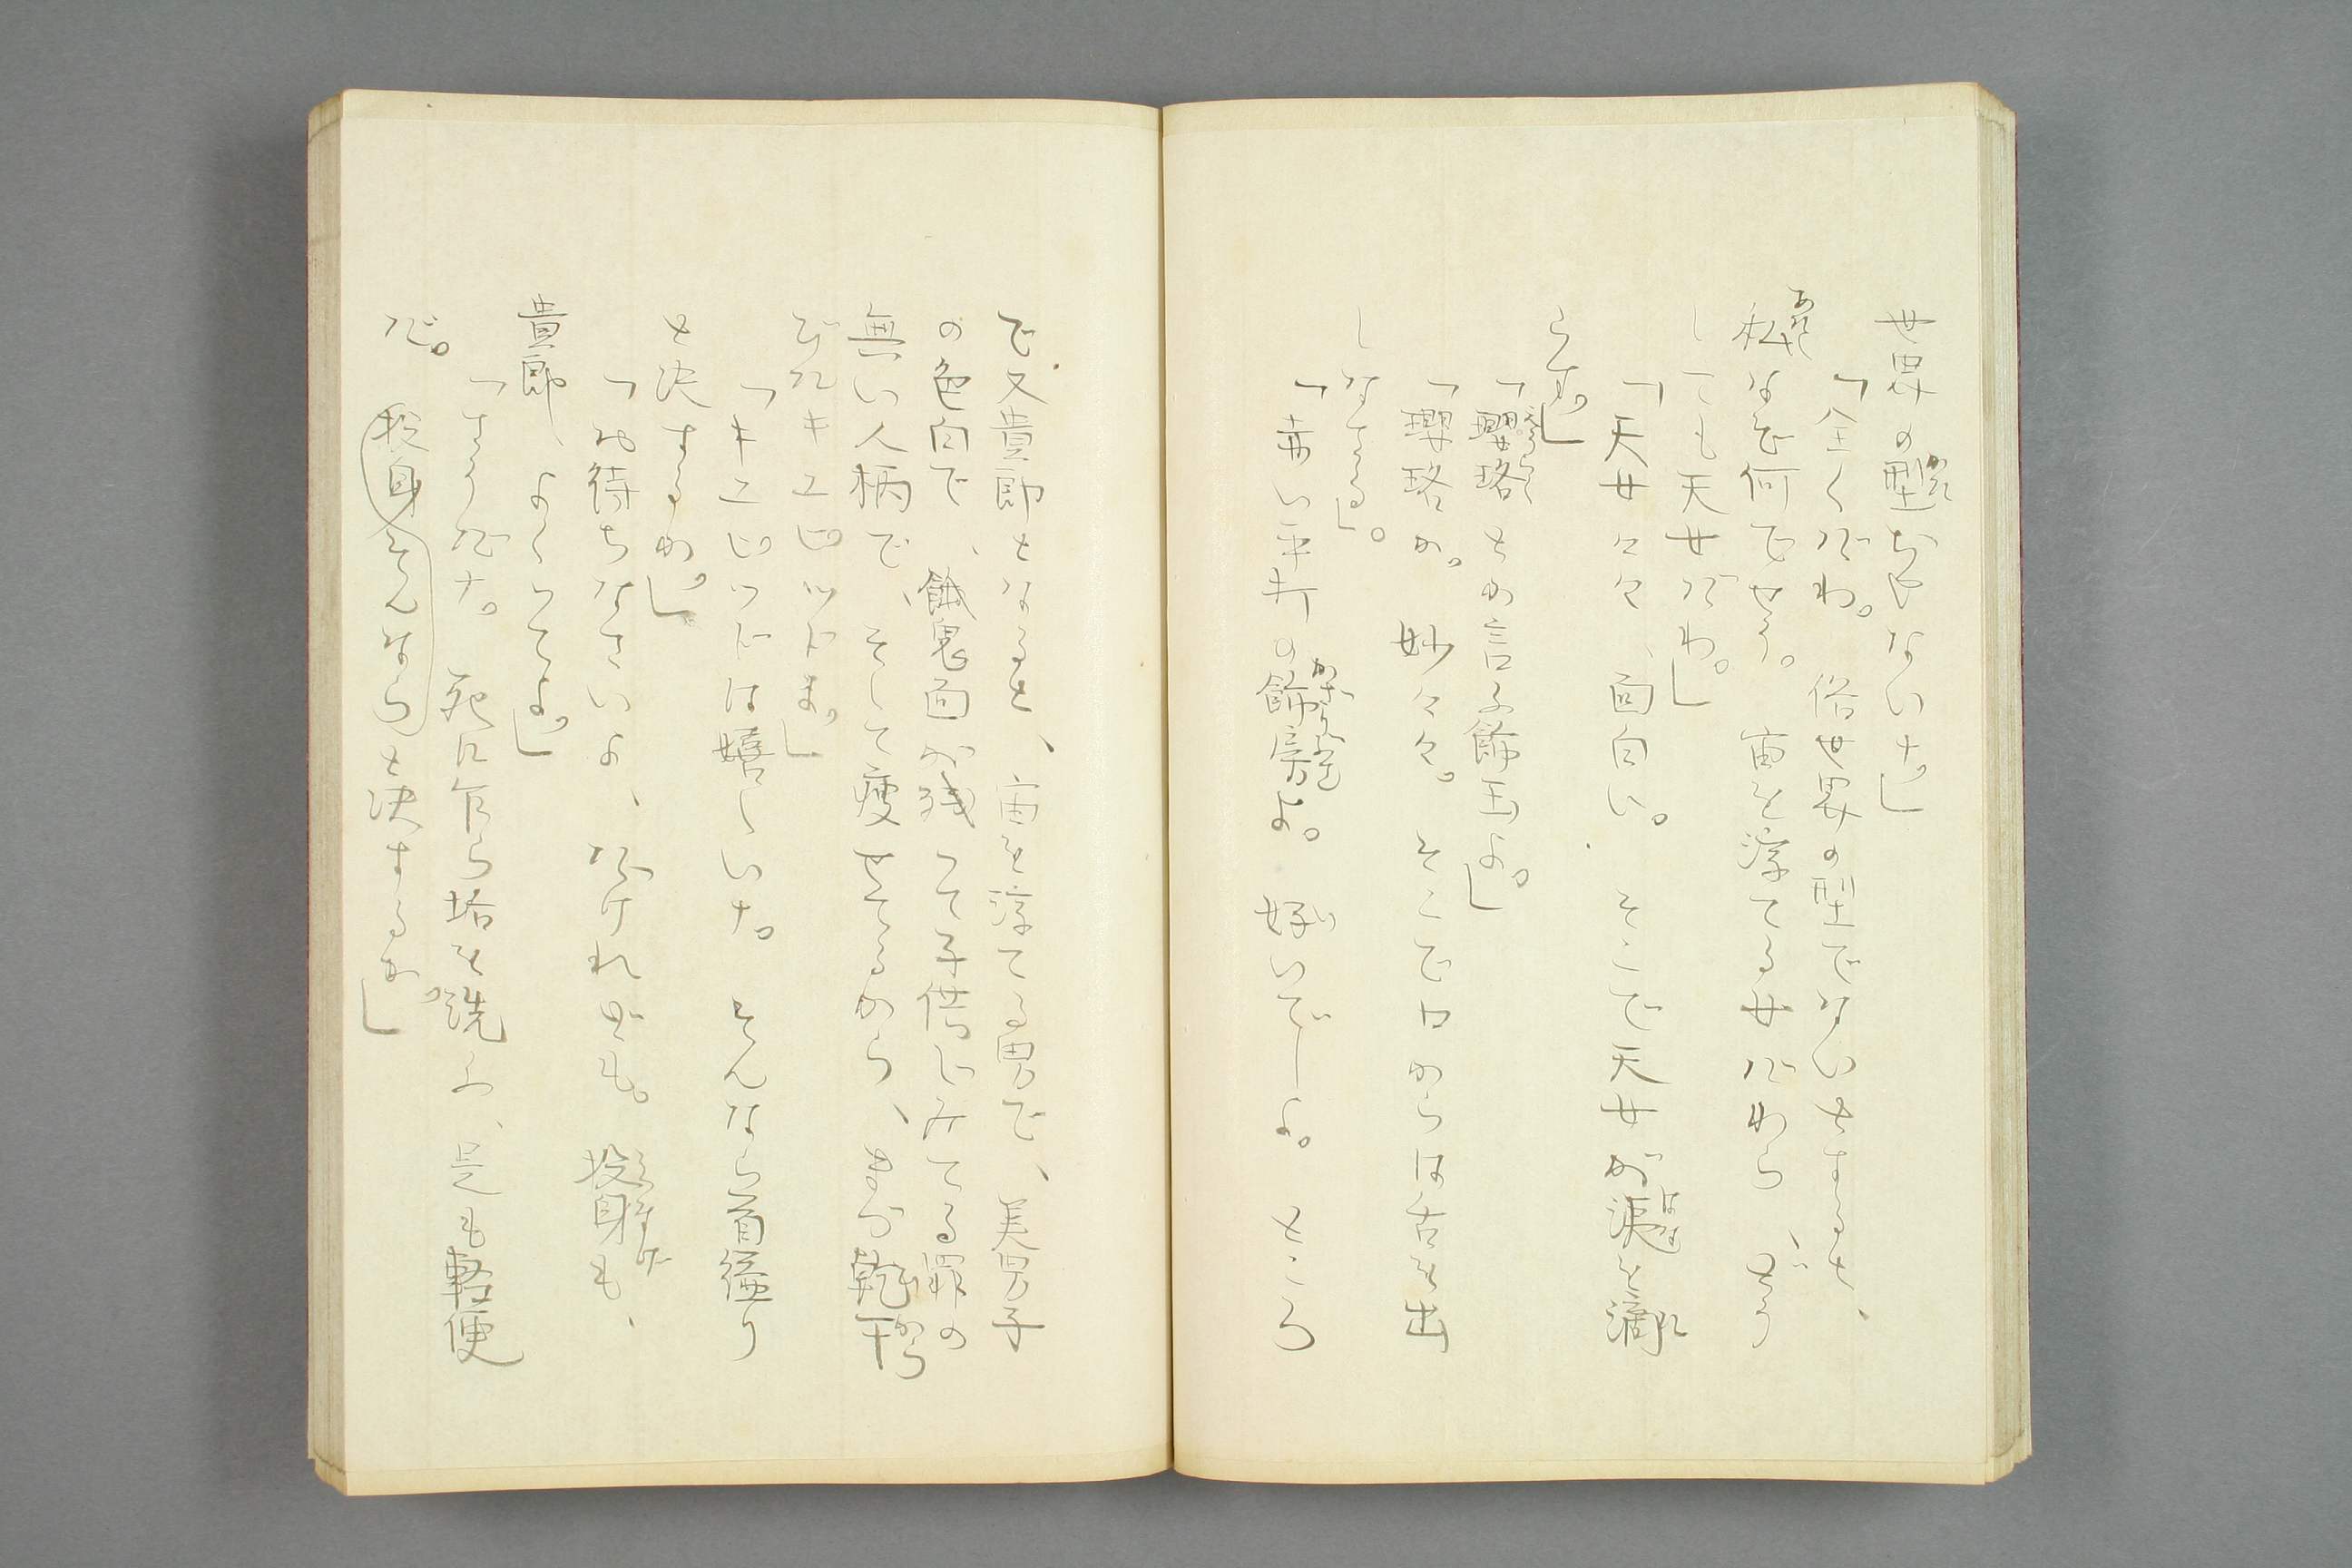 世界の型ぢやないナ。」
「全くだわ。俗世界の型でないとすると、
私なぞ何でせう。宙を浮てる女だわら、どう
しても天女だわ。」
「天女々々、面白い。そこで天女が洟を滴
らす。」
「瓔珞とか言ふ飾玉よ。」
「瓔珞か。妙々々。そこで口からは舌を出
しなさる」。
「赤い平打の飾房よ。好いでしよ。ところ
で又貴郎となると、宙を浮てる男で、美男子
の色白で、餓鬼面が残つて子供じみてる罪の
無い人柄で、そして痩せてるから、まあ乾干
びたキユピツドよ。」
「キユピツドは嬉しいナ。そんなら首縊り
と決するか。」
「お待ちなさいよ、だけれども。投身も、
貴郎、よくつてよ。」
「さうだナ。死に乍ら垢を洗ふ、是も軽便
だ。投身そんならと決するか。」